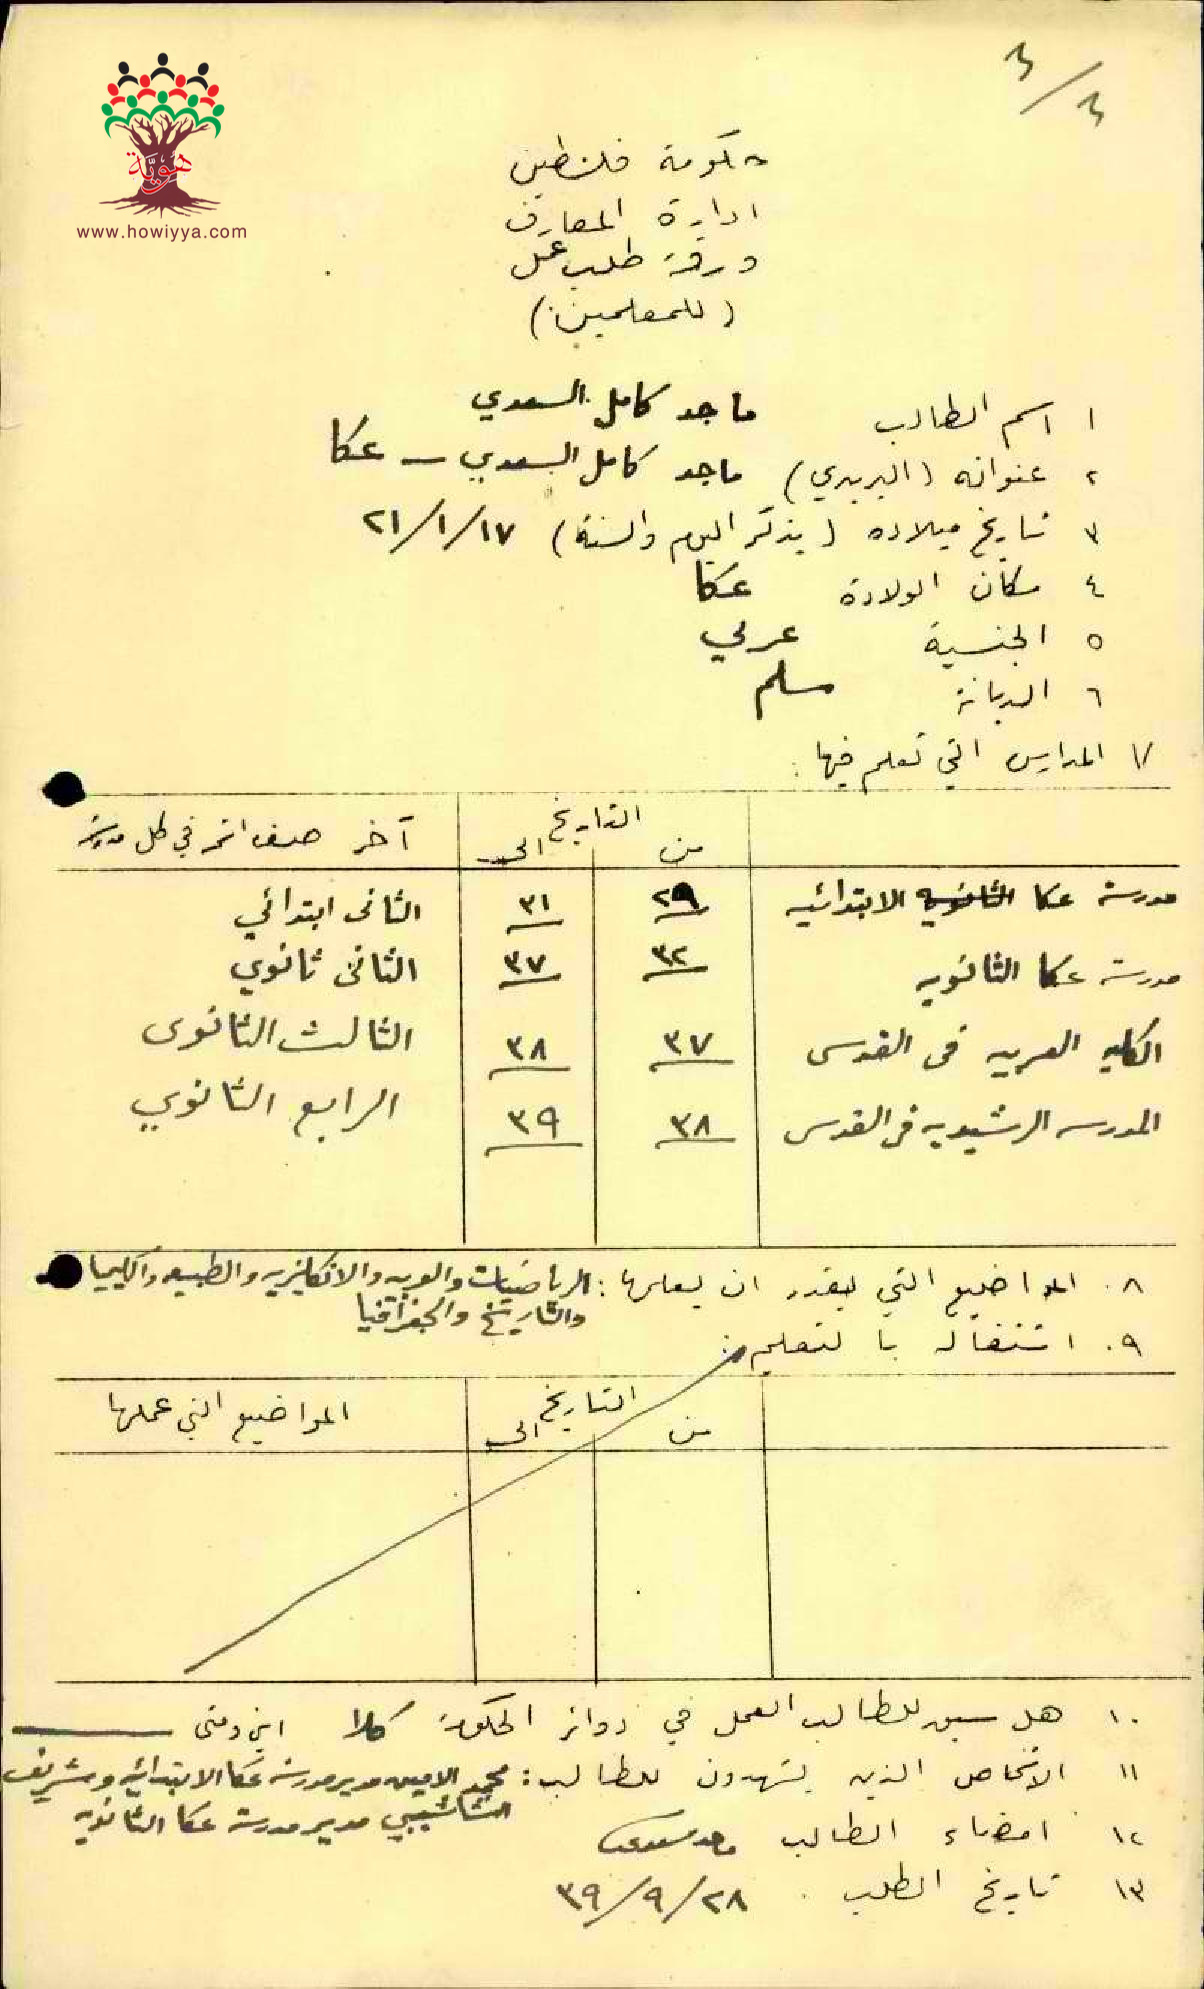 ٣/٣
هوية
www.howiyya.com
حكومة فلسطين
ادارة المعارف
ورقة طلب عمل
(للمعلمين)
١ اسم الطالب ماجد كامل السعدي
٢ عنوانه (البريدي) ماجد كامل السعدي – عكا
٣ تاريخ ميلاده (يذكر اليوم والسنة) ٢١/١/١٧
٤ مكان الولادة عكا
٥ الجنسية عربي
٦ الديانة مسلم
٧ المدارس التي تعلم فيها:
التاريخ
من الى آخر صف اتمه في كل مدرسة
مدرسة عكا الثانويه الابتدائيه ٢٩ ٣١ الثاني ابتدائي
مدرسة عكا الثانويه ٣٢ ٣٧ الثاني ثانوي
الكليه العربيه في القدس ٣٧ ٣٨ الثالث الثانوى
المدرسه الرشيديه في القدس ٣٨ ٣٩ الرابع الثانوي
٨. المواضيع التي يقدر ان يعلمها: الرياضيات والعربيه والانكليزيه والطبيعه والكيميا
والتاريخ والجغرافيا
٩. اشتغاله بالتعليم:
التاريخ
من الى المواضيع التي علمها
١٠. هل سبق للطالب العمل في دوائر الحكومة كلا اين ومتى
١١ الاشخاص الذين يشهدون للطالب: محمد الامين مدير مدرسة عكا الابتدائيه وشريف
النشاشيبي مدير مدرسة عكا الثانويه
١٢ امضاء الطالب
١٣ تاريخ الطلب ٣٩/٩/٢٨